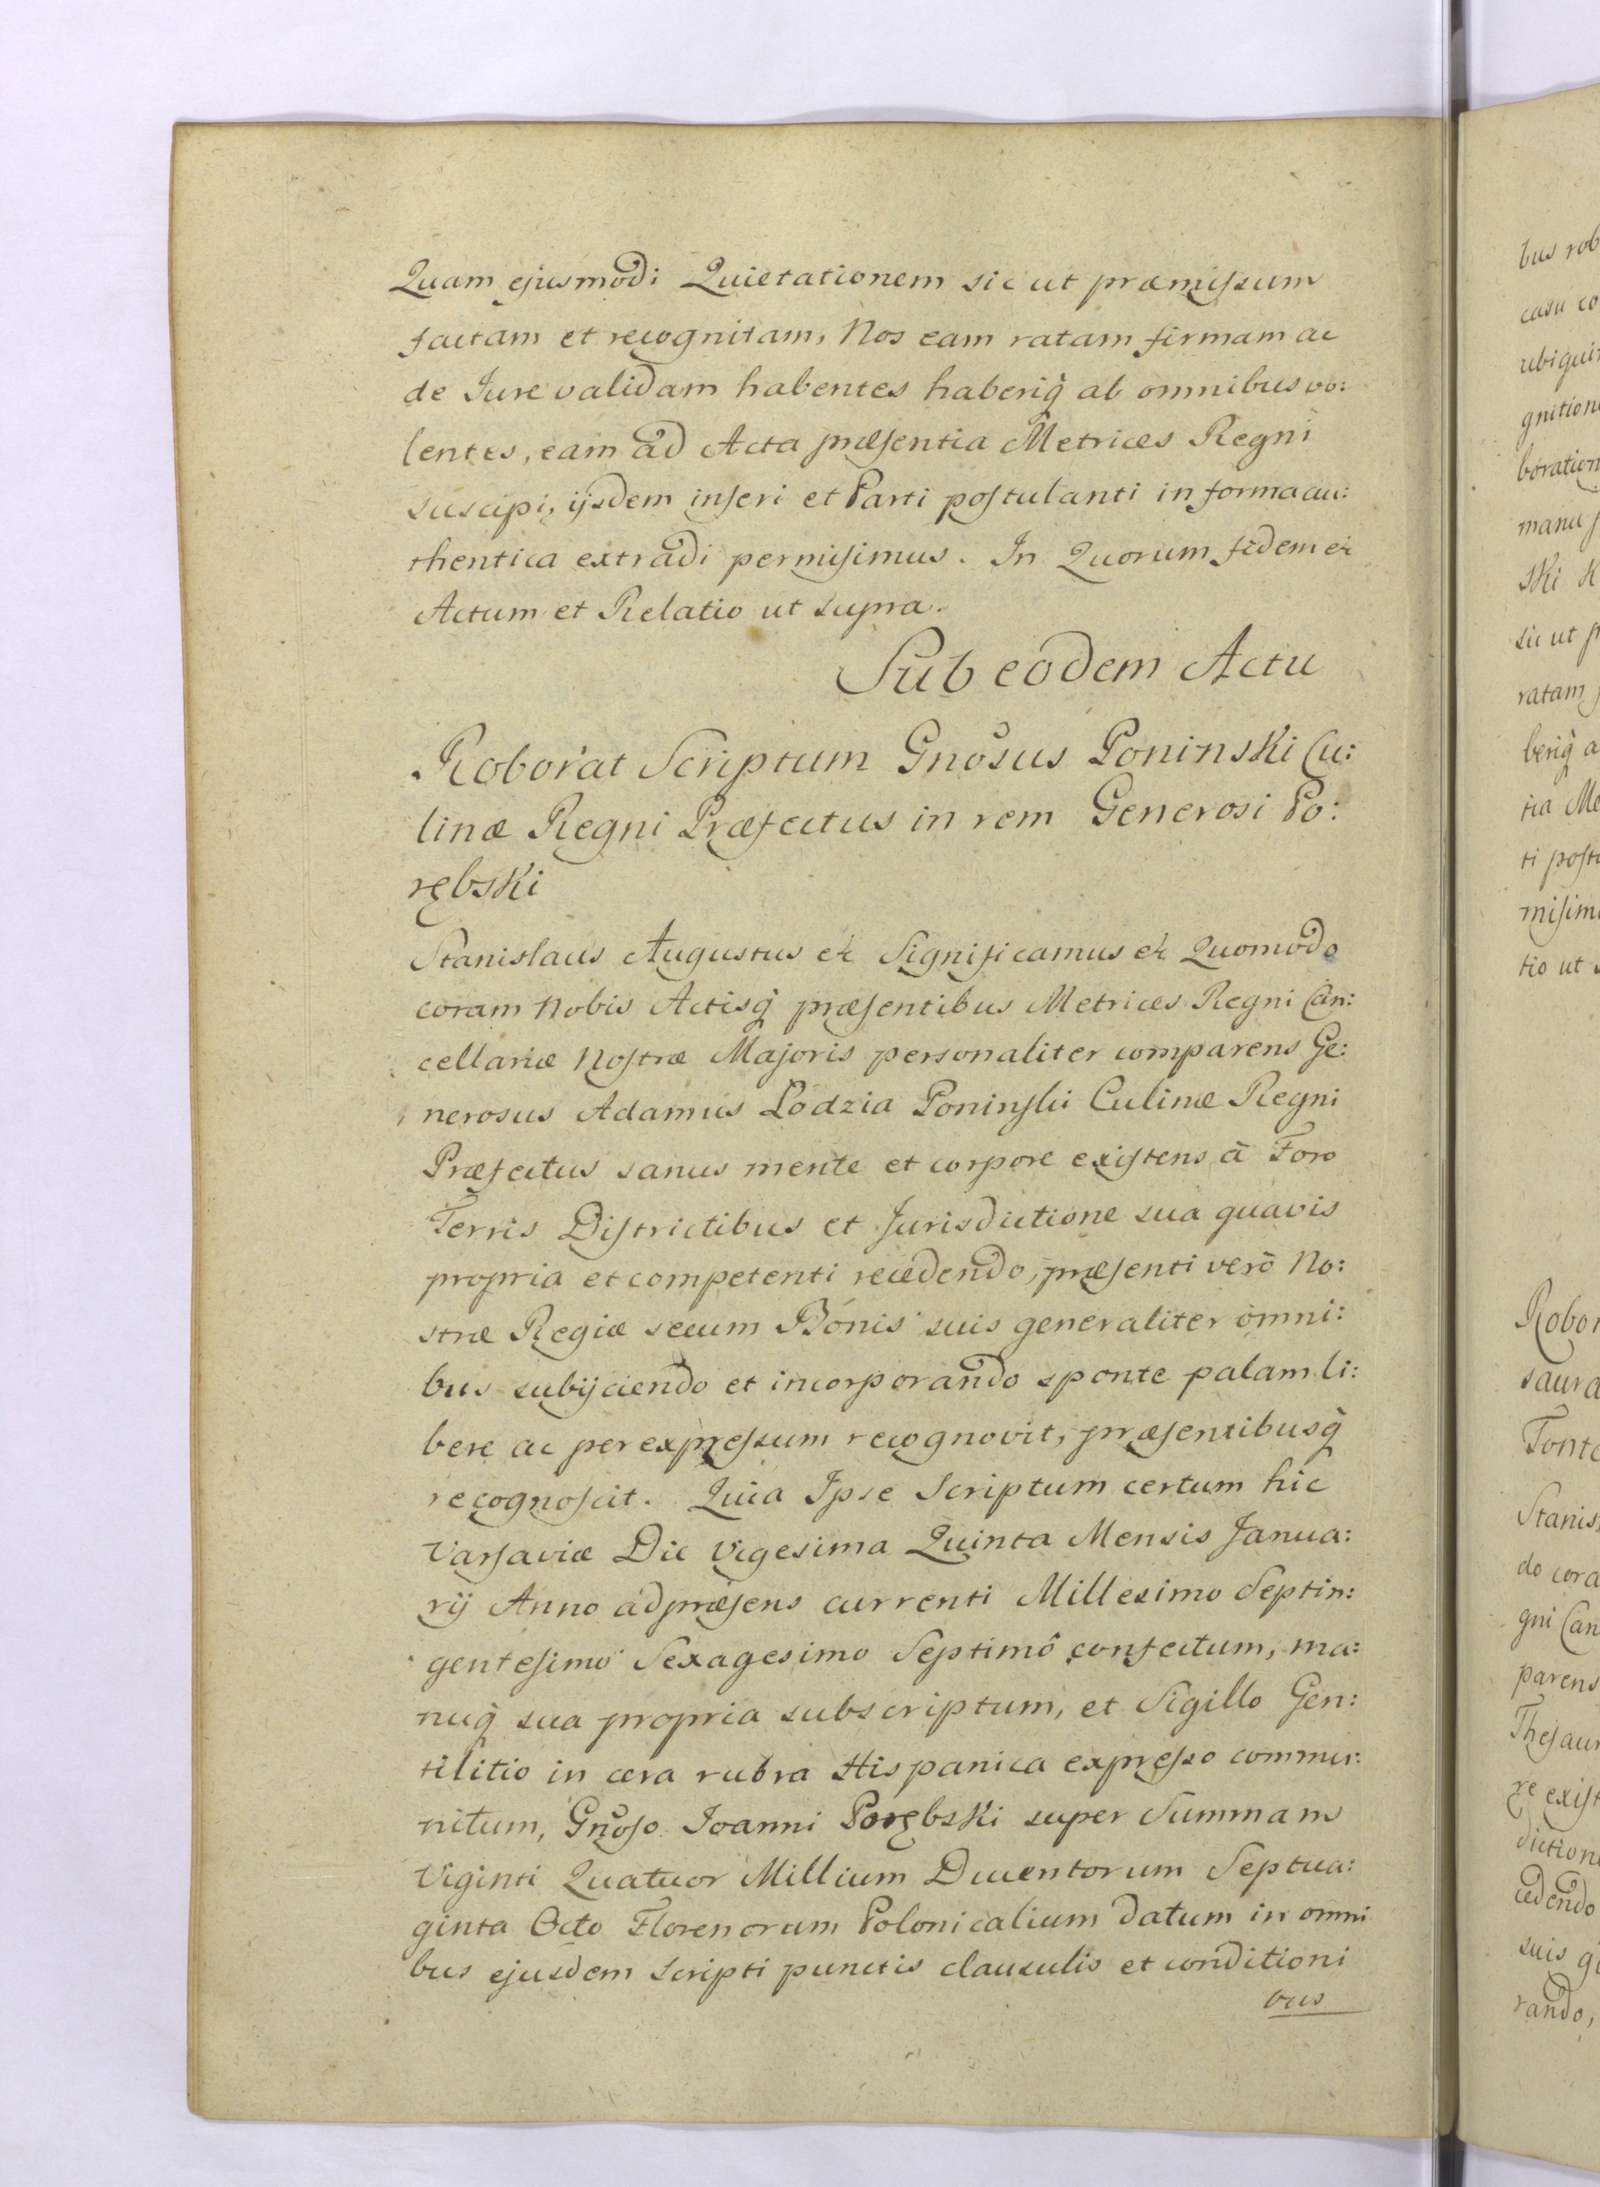 Quam ejusmodi Quietationem sic ut præmissum
factam et recognitam, Nos eam ratam firmam ac
de Jure validam habentes haberiq̀ ab omnibus vo:
lentes, eam ad Acta præsentia Metrices Regni
suscipi, ijsdem inseri et Parti postulanti in forma au:
thentica extradi permisimus. In Quorum fidem &
Actum et Relatio ut supra.
Sub eodem Actu
Roborat Scriptum Gnosus Poninski Cu:
linæ Regni Præfectus in rem Generosi Po:
rębski
Stanislaus Augustus & Significamus & Quomodo
coram Nobis Actisq̀ præsentibus Metrices Regni Can:
cellariæ Nostræ Majoris personaliter comparens Ge:
nerosus Adamus Lodzia Poninski Culinæ Regni
Præfectus sanus mente et corpore existens à Foro
Terris Districtibus et Jurisdictione sua quavis
propria et competenti recedendo, præsenti verò No:
stræ Regiæ secum Bonis suis generaliter omni:
bus subijciendo et incorporando sponte palam li:
bere ac per expressum recognovit, præsentibusq̀
recognoscit. Quia Ipse Scriptum certum hic
Varsaviæ Die Vigesima Quinta Mensis Janua:
rij Anno ad præsens currenti Millesimo Septin:
gentesimo Sexagesimo Septimô confectum, ma:
nuq̀ sua propria subscriptum, et Sigillo Gen:
tilitio in cera rubra Hispanica expresso commu:
nitum, Gnoso Joanni Porębski super Summam
Viginti Quatuor Millium Ducentorum Septua:
ginta Octo Florenorum Polonicalium datum in omni
bus ejusdem Scripti punctis clausulis et conditioni
bus
bus rob
casu co
ubiqui
gnition
boration
manu
ski
sic ut
ratam
beriq̀ a
tia Me
ti post
misim
tio ut
Robor
saura
Font
Stanis
do cora
gni Can
parens
Thesaur
re exist
diction
cedendo
suis g
rando,